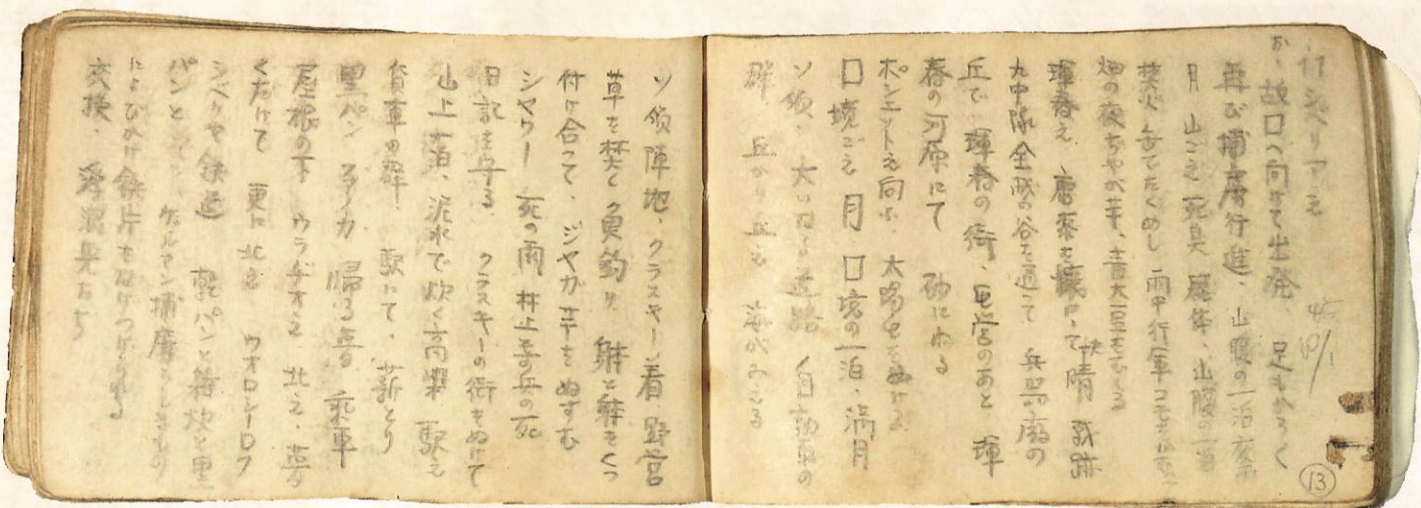 11 シベリアえ
45 10/1
か、故口へ向けて出発 足もかろく
再び捕虜行進、山腹の一泊
月 山ごえ 死臭 屍体、山腹の一泊
焚火 立てたくめし 雨中行軍
畑の夜 じゃが芋、青大豆
琿春え 唐黍を 快晴 戦跡
九中隊全 の谷を通って 兵 廠の
丘で 琿春の街、屯営のあと 琿
春の河原にて 砂にねる
ポシエットえ向ふ 太陽
口境ごえ 月 口境の一泊、満月
ソ領、大いなる道路 自動車の
群 丘から丘え 海がみえる
ソ領陣地、クラスキー着 野営
草を焚く 魚釣り 躰と躰をくっ
付け合って、ジャガ芋をぬすむ
シャワー 死の雨 林上等兵の死
日記を守る クラスキーの街をぬけて
山上一泊、泥水で炊く高粱 駅え
貨車の群 駅にて、薪とり
黒パン 帰る 乗車
屋根の下 ウラヂオえ 北え、夢
くだけて 更に北え ウオロシーロフ
シベリヤ鉄道 乾パンと 炊と黒
パンと ゲルマン捕虜らしきもの
によびかけ 鉄片をなげつけられる
交換、浮浪児たち
13